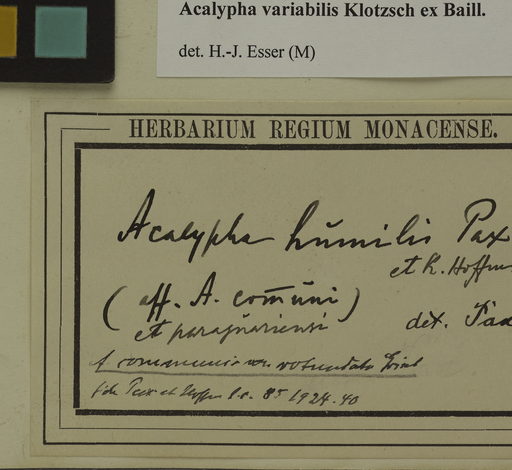 Acalypha variabilis Klotzsch ex Baill.
det. H.-J. Esser (M)
HERBARIUM REGIUM MONACENSE.
Acalypha humilis Pax
et K. Hoffm
(aff. A. comūni)
et paragūariensi
det. Pax
A communis var rotundata Griseb
fide Pax et Hoffm l.c. 85 1924.40